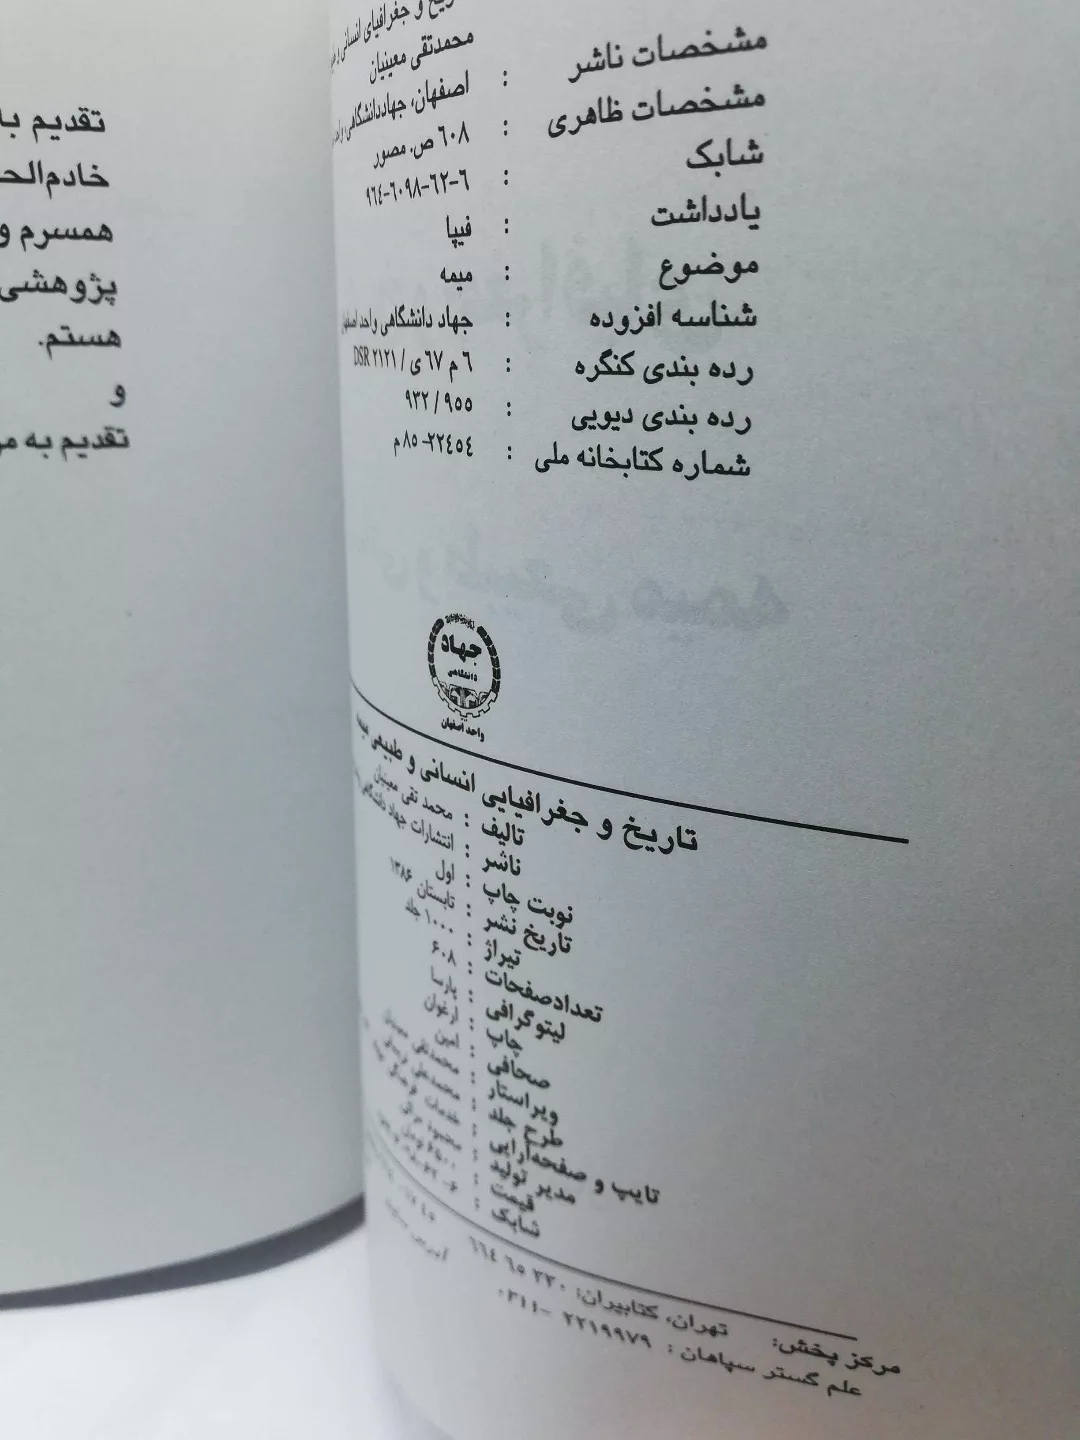 تقدیم به
خادم‌الح
همسرم و
پژوهشی
هستم.
و
تقدیم به
جغرافیای انسانی و
محمدتقی معینیان
مشخصات ناشر : اصفهان، جهاددانشگاهی،
مشخصات ظاهری : ٦٠٨ ص. مصور
شابک : ٦-٦٢-٦٠٩٨-٩٦٤
یادداشت : فیپا
موضوع : میمه
شناسه افزوده : جهاد دانشگاهی واحد اصفهان
رده بندی کنگره : ٦ م ٦٧ ی / DSR ٢١٢١
رده بندی دیویی : ٩٥٥ / ٩٣٢
شماره کتابخانه ملی : ٢٢٤٥٤-٨٥ م
جهاد
دانشگاهی
واحد اصفهان
تاریخ و جغرافیایی انسانی و طبیعی میمه
تالیف : محمد تقی معینیان
ناشر : انتشارات جهاد دانشگاهی
نوبت چاپ : اول
تاریخ نشر : تابستان ۱۳۸۶
تیراژ : ۱۰۰۰ جلد
تعدادصفحات : ۶۰۸
لیتوگرافی : پارسا
چاپ : ارغوان
صحافی : امین
ویراستار : محمدتقی معینیان
طرح جلد : محمدعلی
تایپ و صفحه‌آرایی : خدمات فرهنگی
مدیر تولید : محمود
قیمت : ۶۵۰۰ تومان
شابک :
مرکز پخش: تهران، کتابیران: ۲۳۰ ۶۵ ۶۶۴
علم گستر سپاهان : ۲۲۱۹۹۷۹ -۰۳۱۱